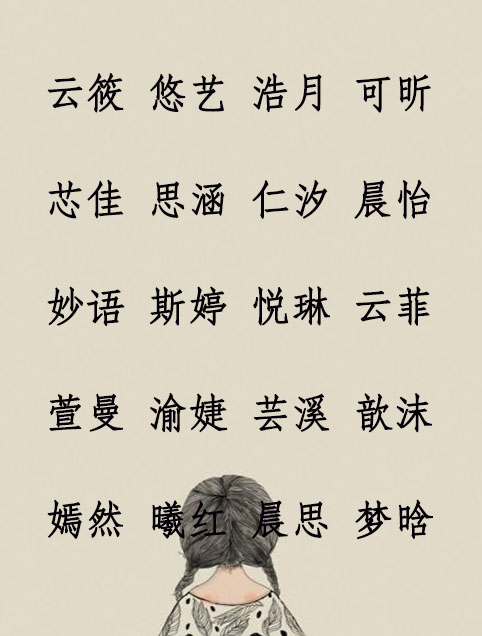 云筱 悠艺 浩月 可昕
芯佳 思涵 仁汐 晨怡
妙语 斯婷 悦琳 云菲
萱曼 渝婕 芸溪 歆沫
嫣然 曦红 晨思 梦晗